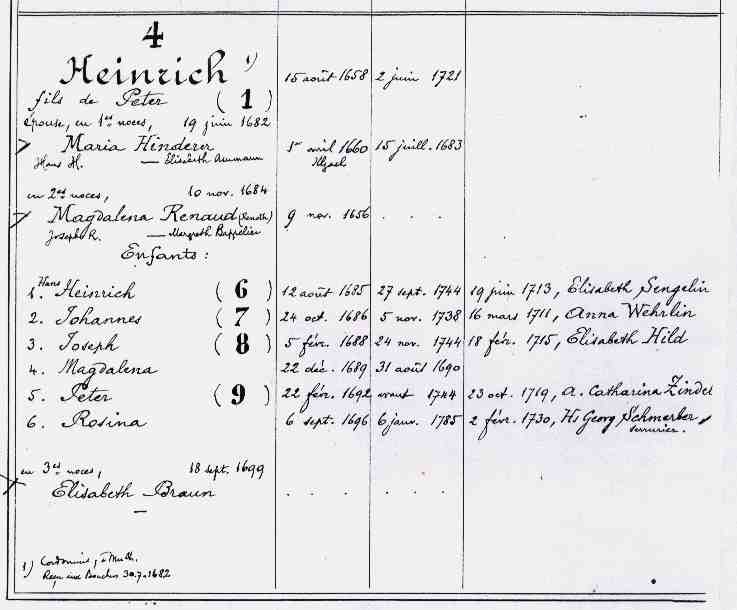 4
Heinrich 1) 15 août 1658 2 juin 1721
fils de Peter (1)
épouse, en 1es noces, 19 juin 1682
Maria Hinderer 1er avril 1660 15 juill. 1683
Hans H. — Elisabeth Ammann Illzach
en 2es noces, 10 nov. 1684
Magdalena Renaud (Renoth) 9 nov. 1656 . . .
Joseph R. — Margreth
Enfants:
1. Hans Heinrich (6) 12 août 1685 27 sept. 1744 19 juin 1713, Elisabeth Sengelin
2. Johannes (7) 24 oct. 1686 5 nov. 1738 16 mars 1711, Anna Wehrlin
3. Joseph (8) 5 fév. 1688 24 nov. 1744 18 fév. 1715, Elisabeth Hild
4. Magdalena 22 déc. 1689 31 août 1690
5. Peter (9) 22 fév. 1692 avant 1744 23 oct. 1719, A. Catharina Zindel
6. Rosina 6 sept. 1696 6 janv. 1785 2 févr. 1730, Hs Georg Schmerber,
serrurier.
en 3es noces, 18 sept. 1699
Elisabeth Braun . . . . . .
—
1) Cordonnier, à Mulh.
Reçu aux 30.7.1682